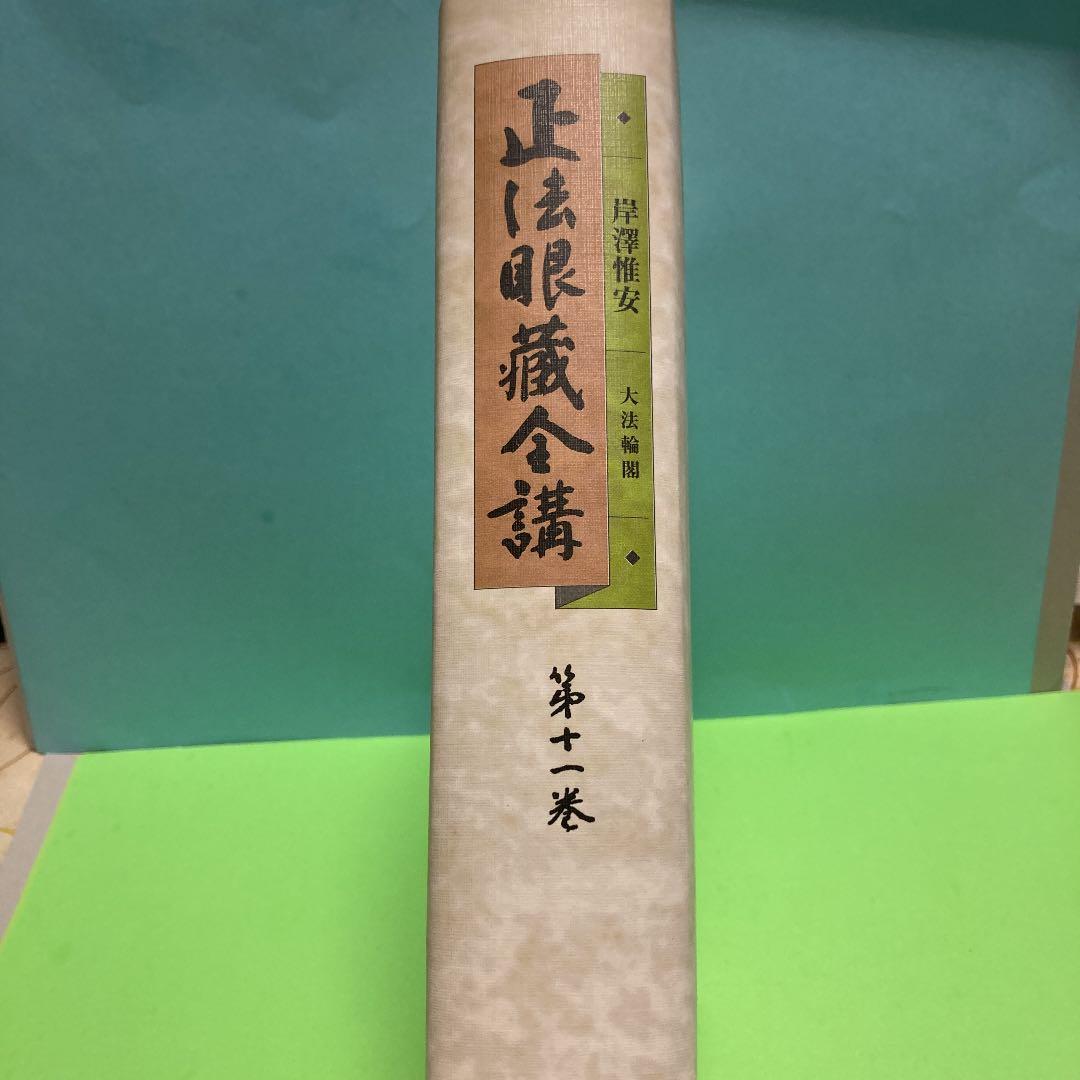 正法眼藏全講
岸澤惟安
大法輪閣
第十一巻